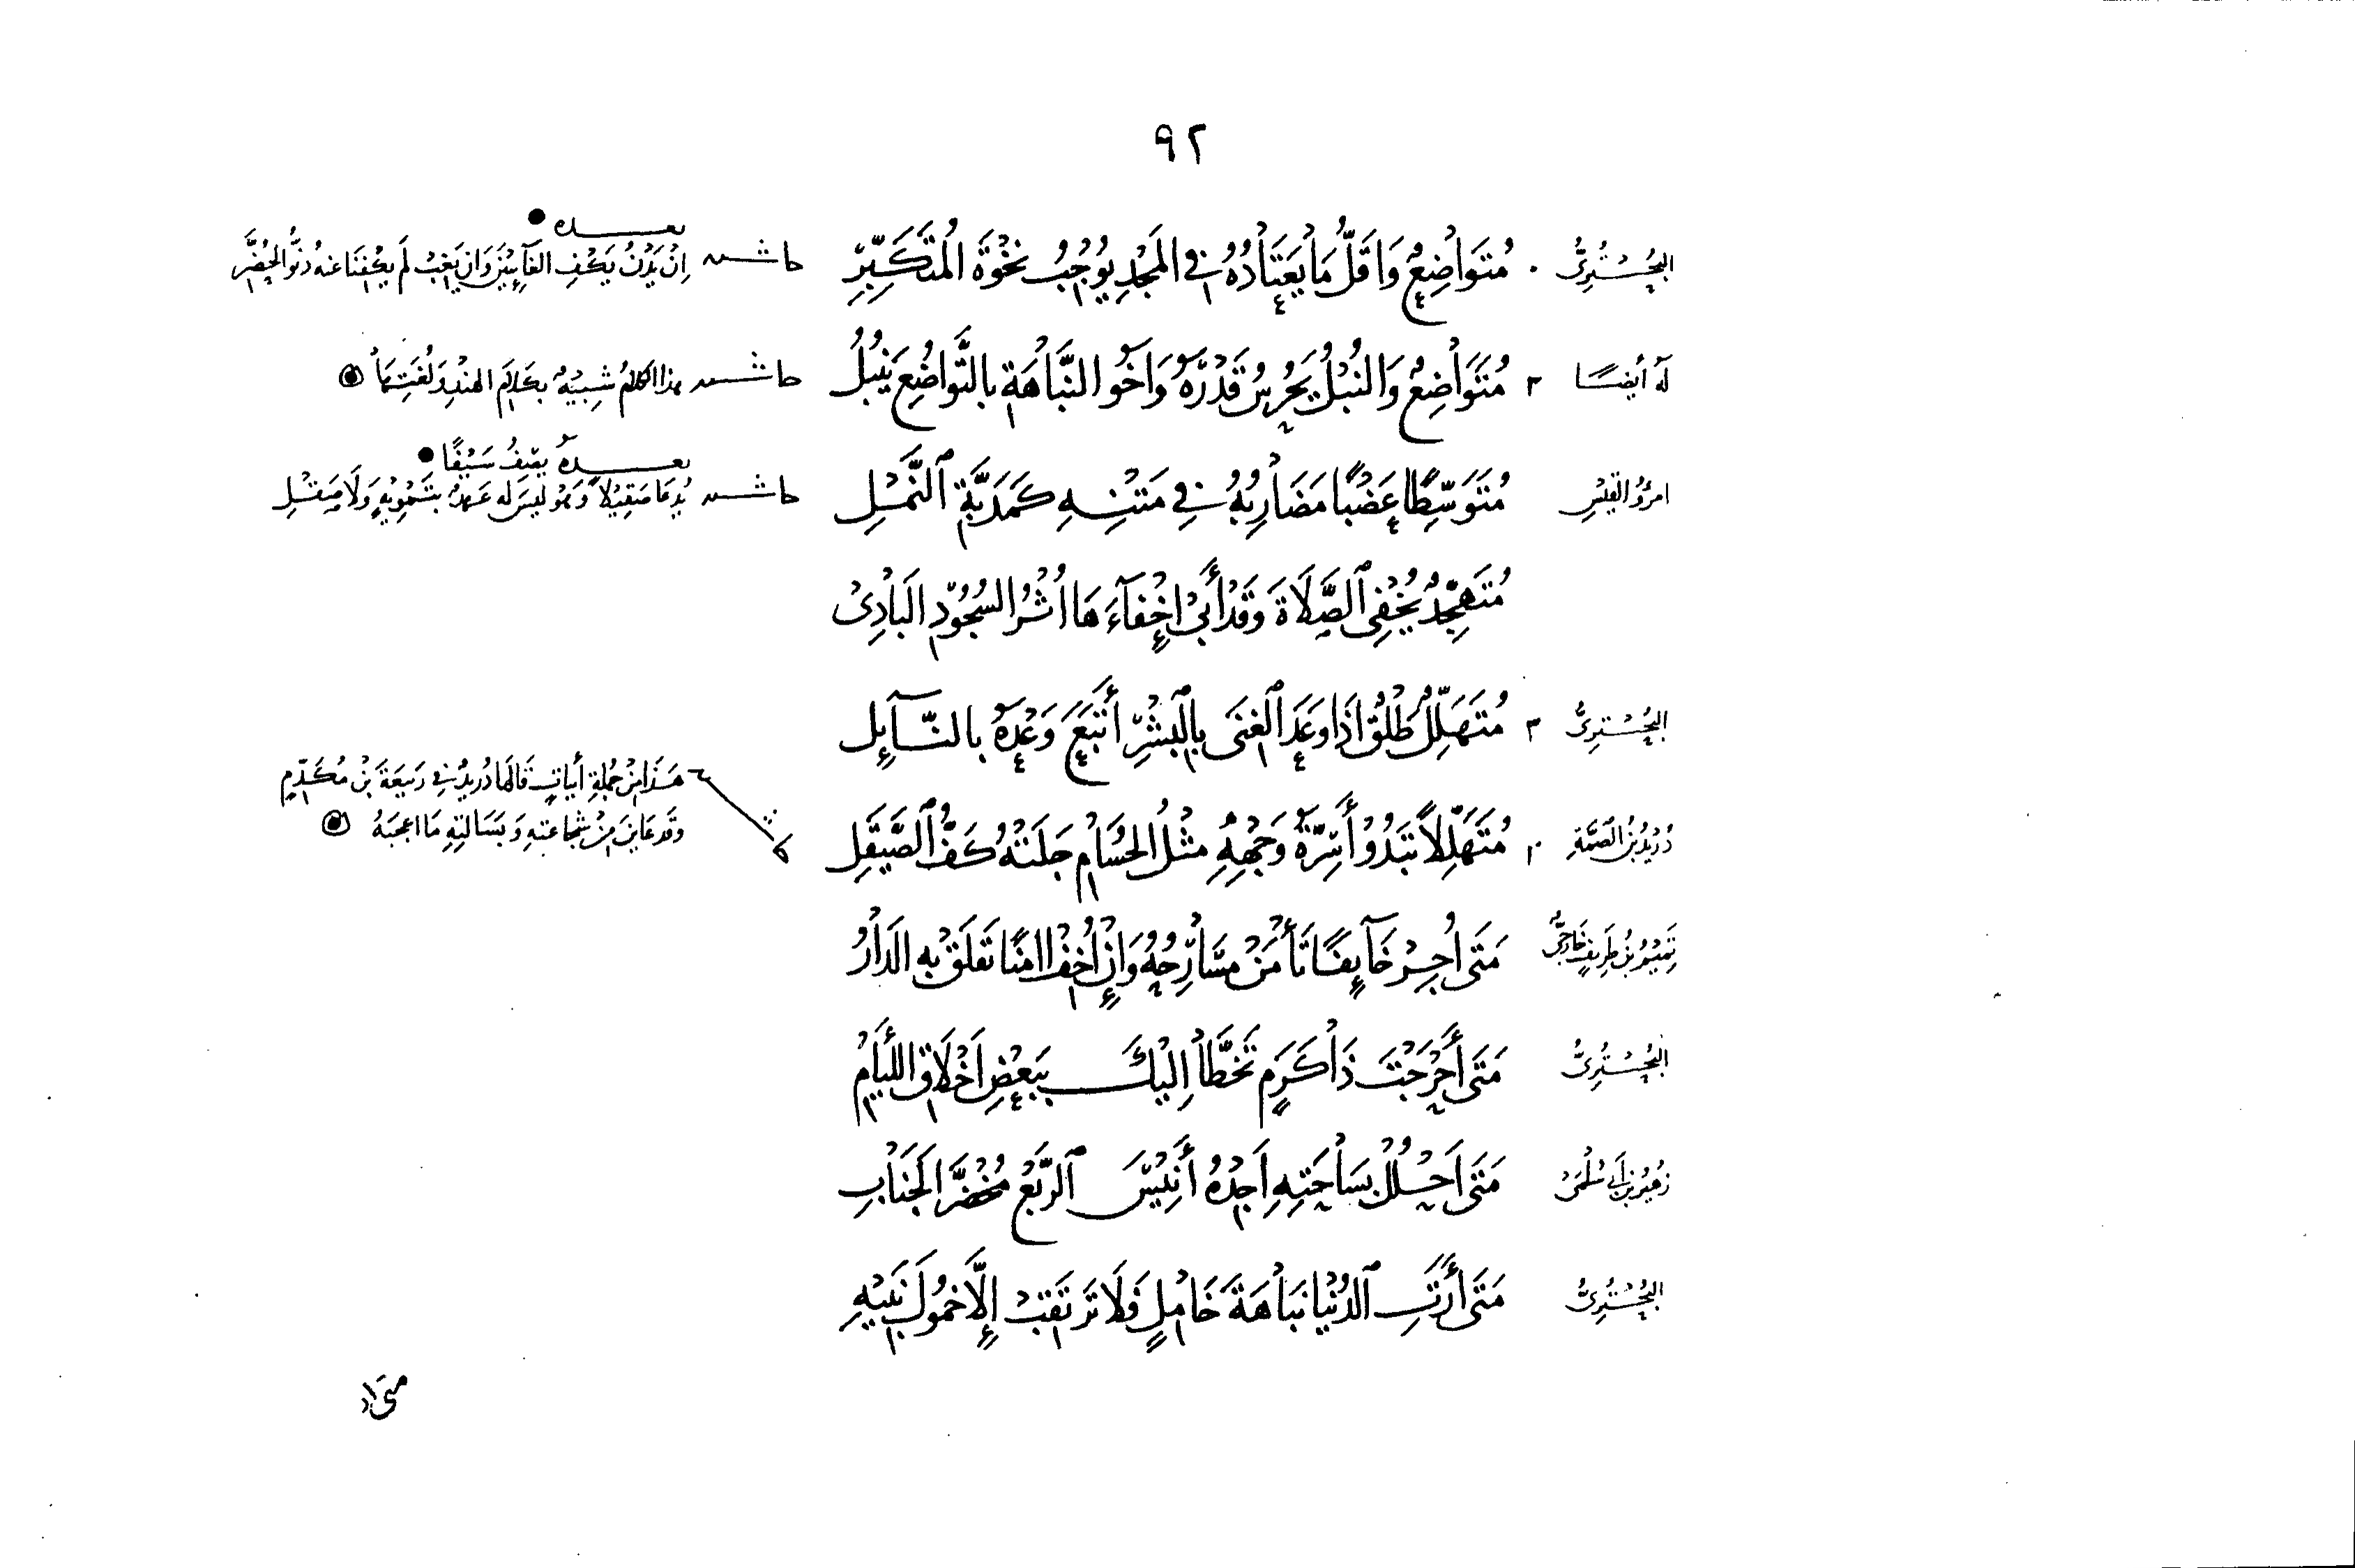 ٩٢
البُحْتُرِيُّ . مُتَوَاضِعٌ وَاَقَلُّ مَا يَعْتَادُهُ فِي المَجْدِ يُوْجِبُ نَخْوَةَ المُتَكَبِّرِ حاشيه
بعده
اِنْ يَدْنُ يَكْفِ الغَآيِبِيْنَ وَاِنْ يَغِبْ لَم يَكْفِنَا عنهُ دُنُوُّ الحُضَّرِ
لَهُ أيضًا ٢ مُتَوَاضِعٌ وَالنُبْلُ يَحْرِسُ قَدْرَهُ وَاَخُو النَّبَاهَةِ بالتَّوَاضُعِ يَنْبُلُ حاشيه هذا الكلامُ شَبِيْهٌ بِكَلَامِ الهِنْدِ وَلُغَتِهَا
امرؤُ القَيْسِ مُتَوَسِّطًا عَضْبًا مَضَارِبُهُ فِي مَتْنِهِ كَمَدَبَّةِ ٱلنَّمْلِ حاشيه
بعدهُ يَصِفُ سَيْفًا
يُدعَا صَقِيْلًا وَهُوَ لَيسَ لَه عَهدٌ بتَمْوِيْهٍ وَلَا صَقْلِ
مُتَهَجِّدٌ يُخْفِى ٱلصَّلَاةَ وَقَدْ أَبَى اِخْفَآءَهَا اَثَرُ السُجُوْدِ البَادِىْ
البُحْتِرِيُّ ٣ مُتَهَلِّلٌ طَلْقٌ اِذَا وَعَدَ ٱلغِنَى بِالبِشْرِ أَتْبَعَ وَعْدَهُ بالنَّآيِلِ
دُرَيْدُ بْنُ الصِمَّةِ ١٠ مُتَهَلِّلاً تَبْدُوْ أَسِرَّةُ وَجْهِهِ مِثْلُ الحُسَامِ جَلَتْهُ كَفُّ ٱلصَّيْقَلِ
هَذَا مِنْ جُمْلَةِ أَبياتٍ قَالَهَا دُرَيدٌ فِي رَبيعَةَ بْنِ مُكَدَّمٍ
وقَد عَايَنَ مِنْ شَجَاعَتِهِ وَبَسَالَتِهِ مَا اعجَبَهُ
تَمِيْمُ بنُ طَرِيفٍ خَارِجِيٌّ مَتَى اُجِرْ خَآيِفًا تَأْمَنْ مَسَارِحُهُ وَاِنْ اُخِفْ اٰمِنًا تَقلَقْ بِهِ الدَارُ
البُحْتُرِيُّ مَتَى أَحْرَجْتَ ذَا كَرَمٍ تَخَطَّا اِلَيْكَ بِبَعْضِ اَخْلَاقِ اللِّيَامِ
زُهَيْرُ بنُ اَبِي سُلْمَى مَتَى اَحْلُلْ بِسَاحَتِهِ اَجِدْهُ أَنِيْسَ ٱلرَّبْعِ مُخْضَرَّ الجَنَابِ
البُحْتُرِيُّ مَتَى أَرَتِ ٱلدُنْيَا نَبَاهَةَ خَامِلٍ فَلَا تَرْتَقِبْ اِلَّا خُمُولَ نَبِيْهِ